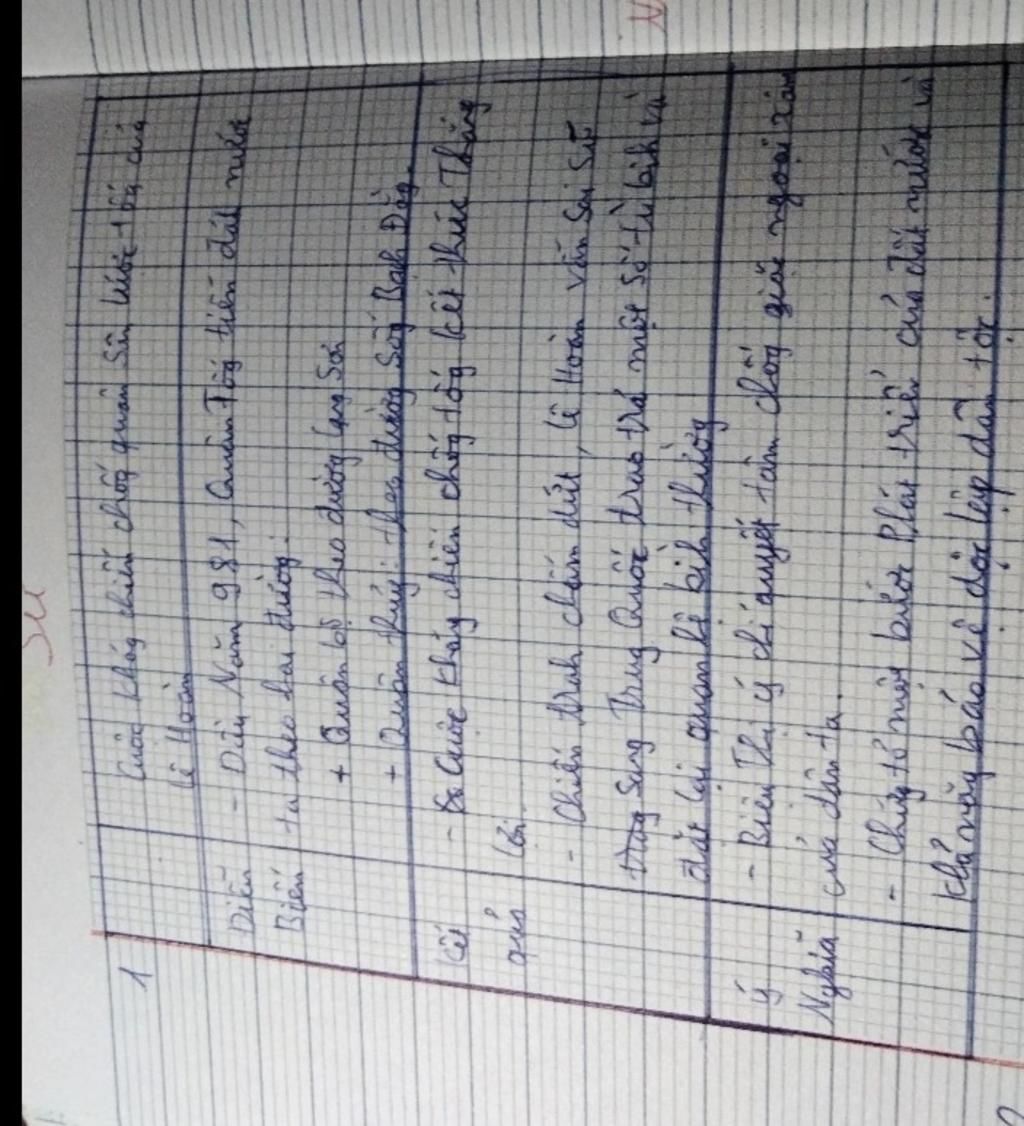 Sử
1
Cuộc kháng chiến chống quân Sâm lược tống của
lê Hoàn
Diễn
Biến
- Diễn Năm 981, Quân Tống tiến đất nước
ta theo hai đường:
+ Quân bộ theo đường lạng Sơn
+ Quân thủy: theo đường Sông Bạch Đằng.
Kết
quả
- Cuộc kháng chiến chống tống kết thúc Thắng
lợi.
- Chiến tranh chấm dứt, lê Hoàn vẫn Sai Sứ
Sang Trung Quốc trao trả một số tù binh và
đặt lại quan hệ bình thường
ý
Nghĩa
- Biểu Thị ý chí quyết tâm chống giặc ngoại xâm
của dân ta.
- Chứng tỏ một bước Phát triển của đất nước và
khả năng bảo vệ độc lập dân tộc.